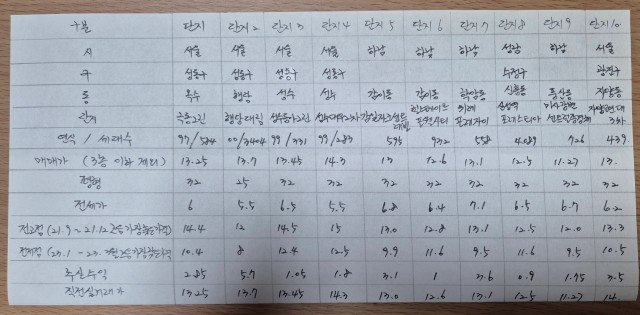 구분 단지 단지 2 단지 3 단지 4 단지 5 단지 6 단지 7 단지 8 단지 9 단지 10
시 서울 서울 서울 서울 하남 하남 하남 성남 하남 서울
구 성동구 성동구 성동구 성동구 수정구 광진구
동 옥수 행당 성수 성수 감이동 감이동 학암동 신흥동 풍산동 자양동
단지 극동그린 행당대림 위례 자양현대 3차
연식 / 세대수 97/584 00/3404 99/331 99/283 595 932 558 4.089 726 439
매매가 (3층 이하 제외) 13.25 13.7 13.45 14.3 13 12.6 13.1 12.5 11.27 13.
평형 32 25 32 32 32 32 32 32 32 32
전세가 6 5.5 6.5 5.5 6.8 6.4 7.1 6.5 6.7 6.2
전고점 (21.9 ~ 21.12 14.4 12 14.5 15 13.0 12.8 13.1 12.5 12.0 13.3
전저점 (23.1 ~ 23. 10.4 8 12.4 12.5 9.9 11.6 9.5 11.6 9.5 10.5
2.85 5.7 1.05 1.8 3.1 1 3.6 0.9 1.75 3.5
직전실거래가 13.25 13.7 13.45 14.3 13.0 12.6 13.1 12.5 11.27 14